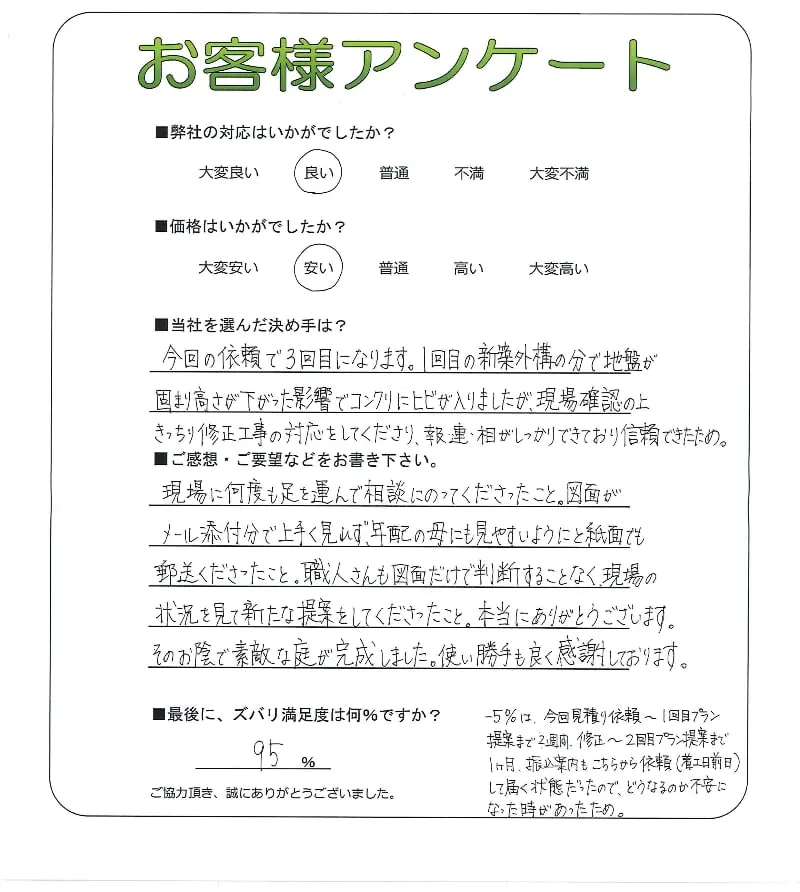 お客様アンケート
■弊社の対応はいかがでしたか？
大変良い 良い 普通 不満 大変不満
■価格はいかがでしたか？
大変安い 安い 普通 高い 大変高い
■当社を選んだ決め手は？
今回の依頼で3回目になります。1回目の新築外構の分で地盤が
固まり高さが下がった影響でコンクリにヒビが入りましたが、現場確認の上
きっちり修正工事の対応をしてくださり、報・連・相がしっかりできており信頼できたため。
■ご感想・ご要望などをお書き下さい。
現場に何度も足を運んで相談にのってくださったこと。図面が
メール添付分で上手く見れず、年配の母にも見やすいようにと紙面でも
郵送くださったこと。職人さんも図面だけで判断することなく、現場の
状況を見て新たな提案をしてくださったこと。本当にありがとうございます。
そのお陰で素敵な庭が完成しました。使い勝手も良く感謝しております。
■最後に、ズバリ満足度は何％ですか？
95 ％
ご協力頂き、誠にありがとうございました。
-5％は、今回見積り依頼〜1回目プラン
提案まで2週間、修正〜2回目プラン提案まで
1ヶ月、振込案内もこちらから依頼(着工日前日)
して届く状態だったので、どうなるのか不安に
なった時があったため。